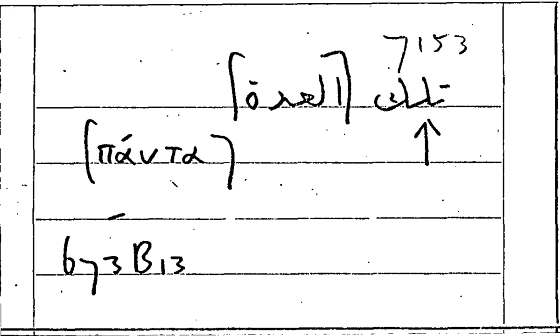 7153
تلك [العدة]
[πάντα]
673B13